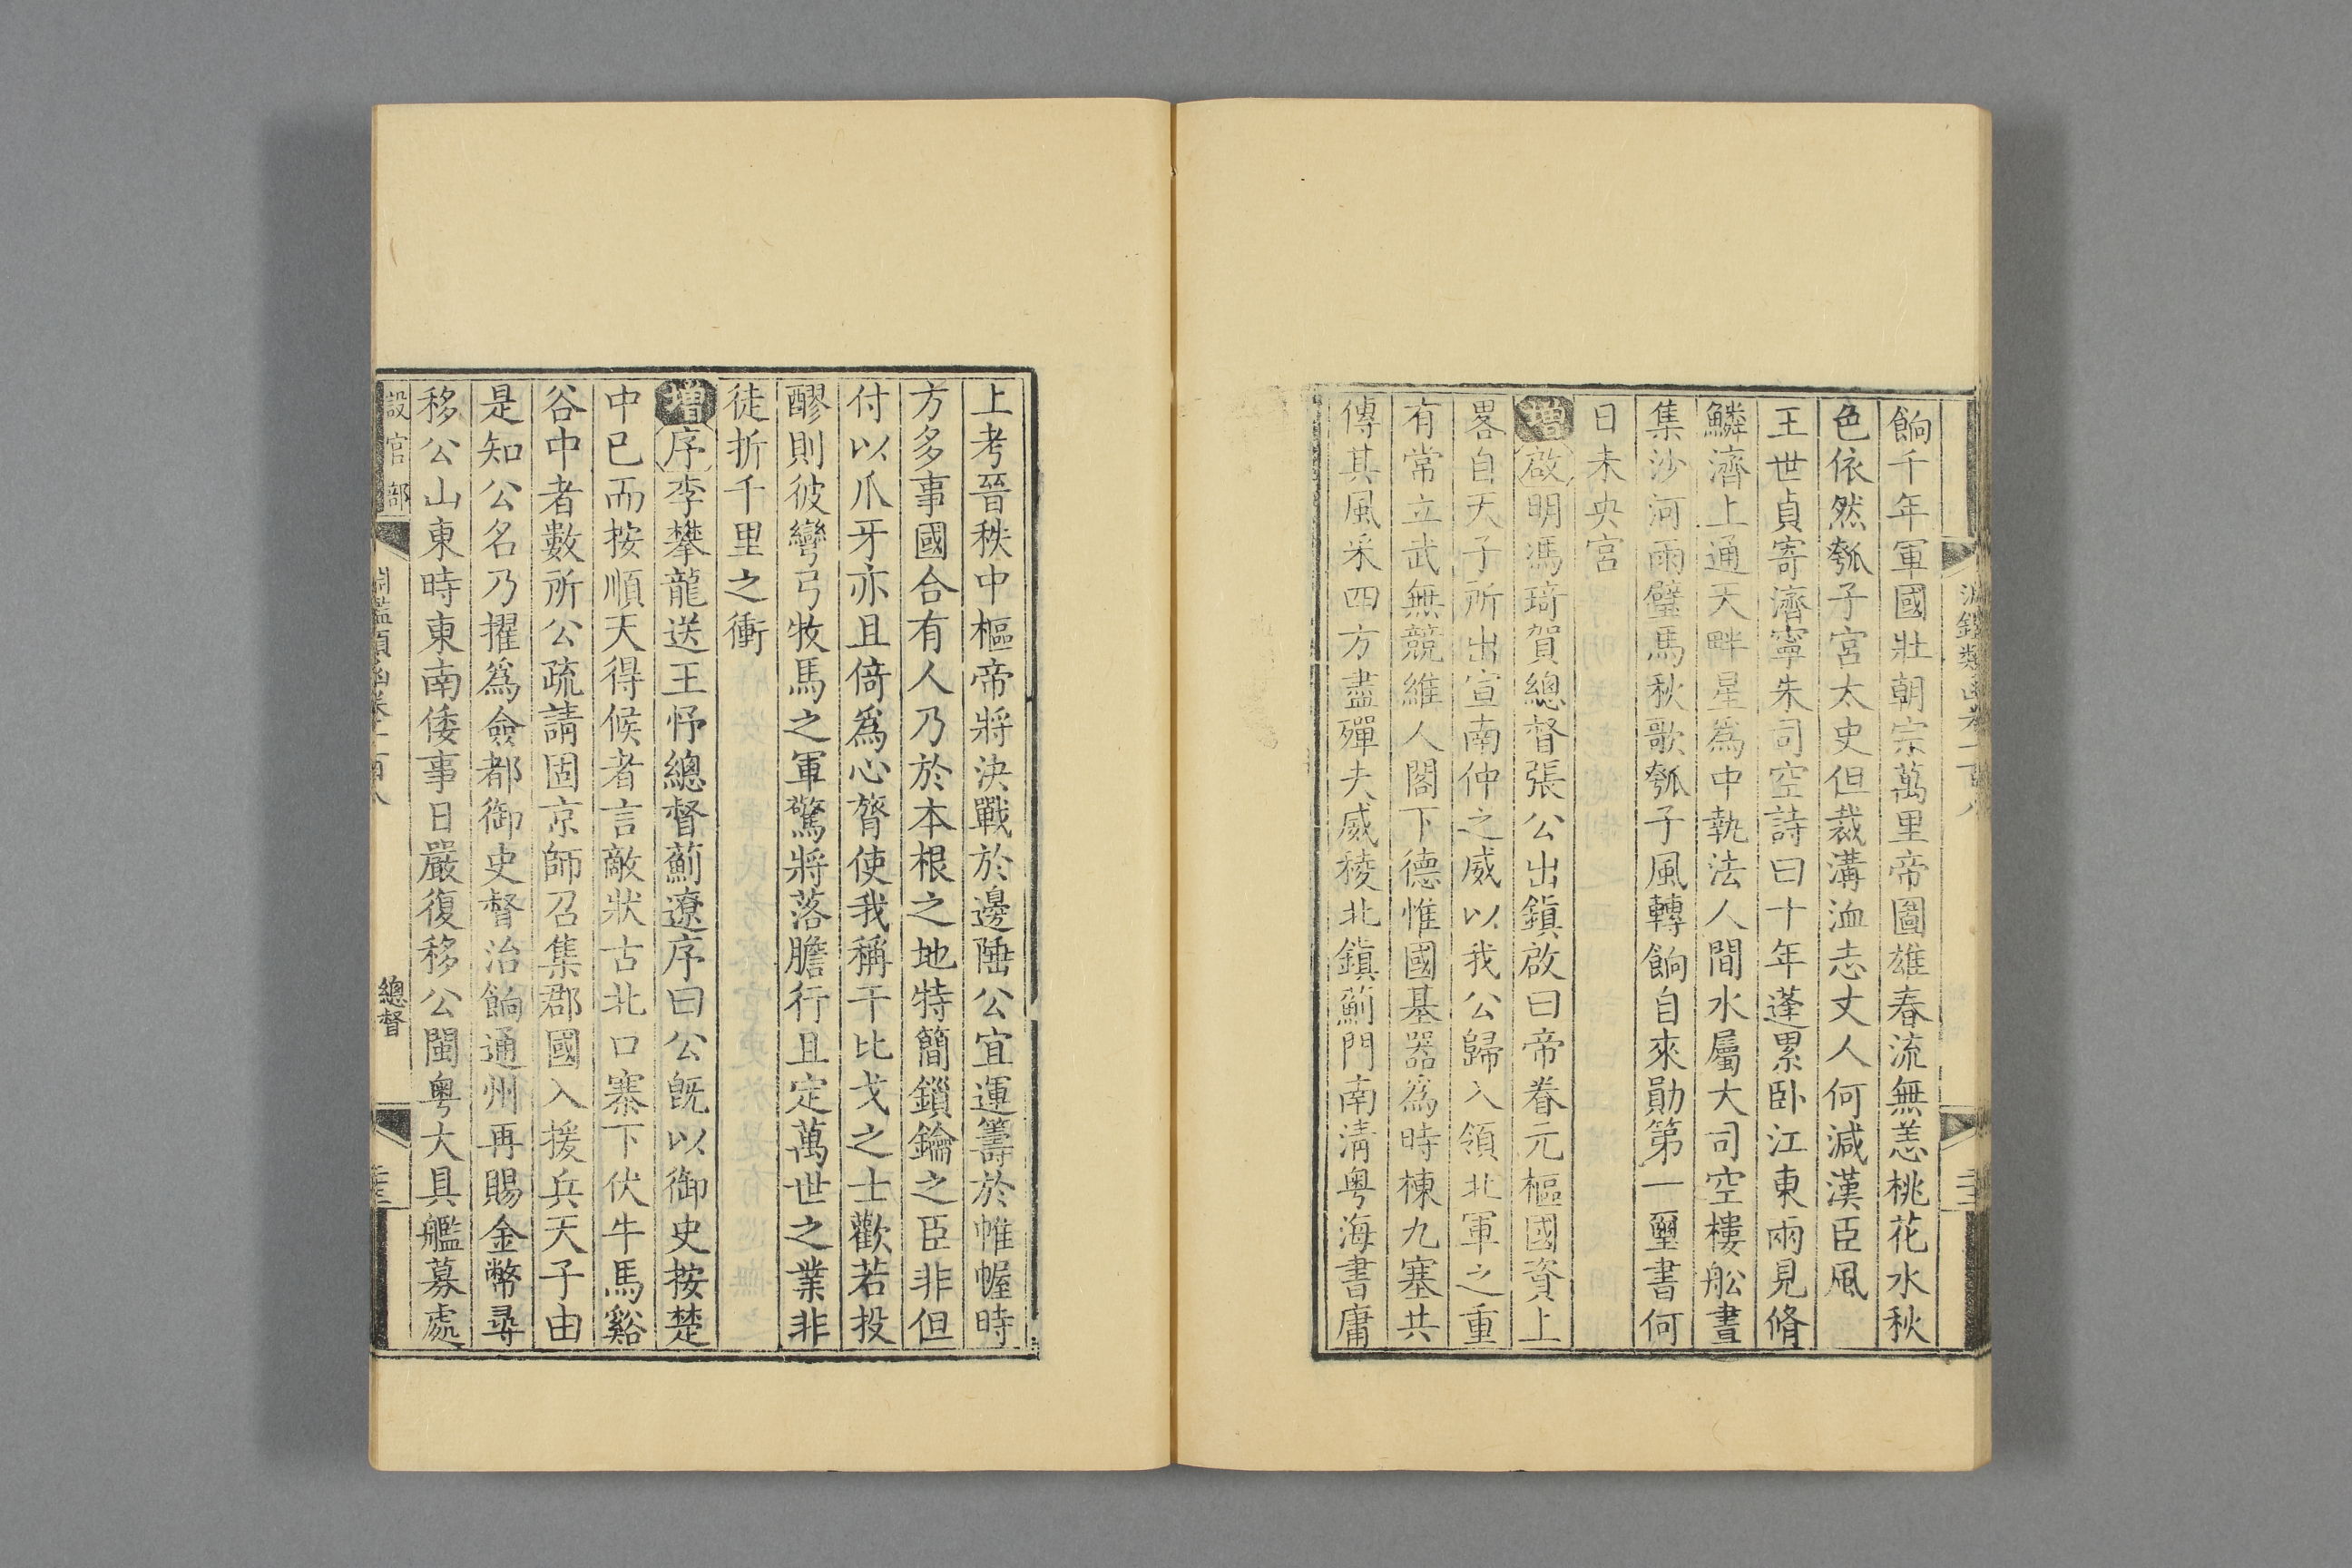 餉千年軍國壯朝宗萬里帝圖雄春流無恙桃花水秋
色依然瓠子宮太史但裁溝洫志丈人何減漢臣風
王世貞寄濟寧朱司空詩曰十年蓬累卧江東兩見脩
鱗濟上通天畔星爲中執法人間水屬大司空樓舩晝
集沙河雨璧馬秋歌瓠子風轉餉自來勛第一璽書何
日未央宮
增啟明馮琦賀總督張公出鎮啟曰帝眷元樞國資上
畧自天子所出宣南仲之威以我公歸入領北軍之重
有常立武無競維人閣下德惟國基器爲時棟九塞共
傳其風采四方盡殫夫威稜北鎮薊門南清粤海書庸
上考晉秩中樞帝將決戰於邊陲公宜運籌於帷幄時
方多事國合有人乃於本根之地特簡鎖鑰之臣非但
付以爪牙亦且倚爲心膂使我稱干比戈之士歡若投
醪則彼彎弓牧馬之軍驚將落膽行且定萬世之業非
徒折千里之衝
增序李攀龍送王忬總督薊遼序曰公旣以御史按楚
中已而按順天得候者言敵狀古北口寨下伏牛馬谿
谷中者數所公疏請固京師召集郡國入援兵天子由
是知公名乃擢爲僉都御史督治餉通州再賜金幣尋
移公山東時東南倭事日嚴復移公閩粤大具艦募處
設官部
總督